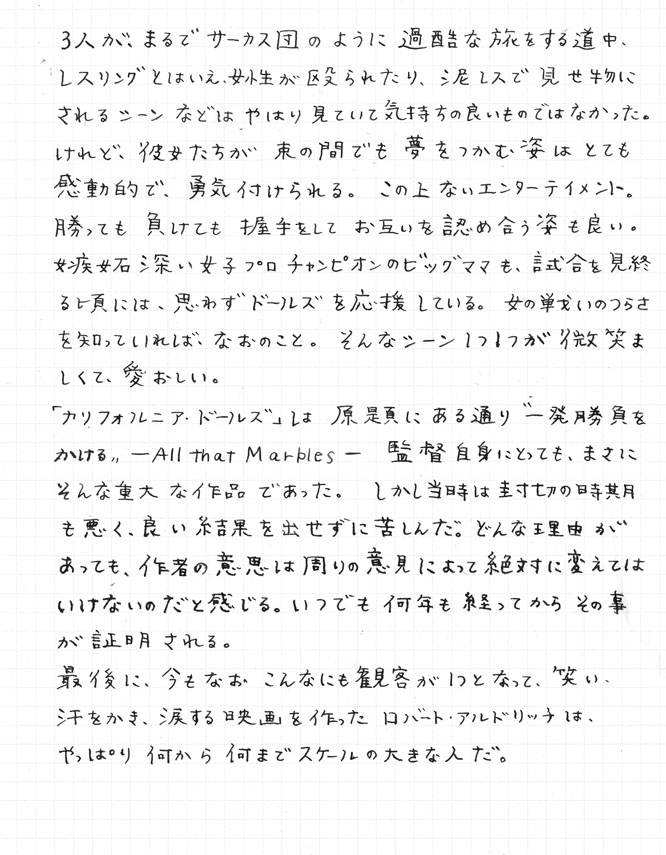 3人が、まるでサーカス団のように過酷な旅をする道中、
レスリングとはいえ、女性が殴られたり、泥レスで見せ物に
されるシーンなどはやはり見ていて気持ちの良いものではなかった。
けれど、彼女たちが束の間でも夢をつかむ姿はとても
感動的で、勇気付けられる。この上ないエンターテイメント。
勝っても負けても握手をしてお互いを認め合う姿も良い。
嫉妬深い女子プロチャンピオンのビッグママも、試合を見終
る頃には、思わずドールズを応援している。女の戦いのつらさ
を知っていれば、なおのこと。そんなシーン1つ1つが微笑ま
しくて、愛おしい。
「カリフォルニア・ドールズ」は原題にある通り“一発勝負を
かける„ ーAll that Marblesー 監督自身にとっても、まさに
そんな重大な作品であった。しかし当時は封切の時期
も悪く、良い結果を出せずに苦しんだ。どんな理由が
あっても、作者の意思は周りの意見によって絶対に変えては
いけないのだと感じる。いつでも何年も経ってからその事
が証明される。
最後に、今もなおこんなにも観客が1つとなって、笑い、
汗をかき、涙する映画を作ったロバート・アルドリッチは、
やっぱり何から何までスケールの大きな人だ。